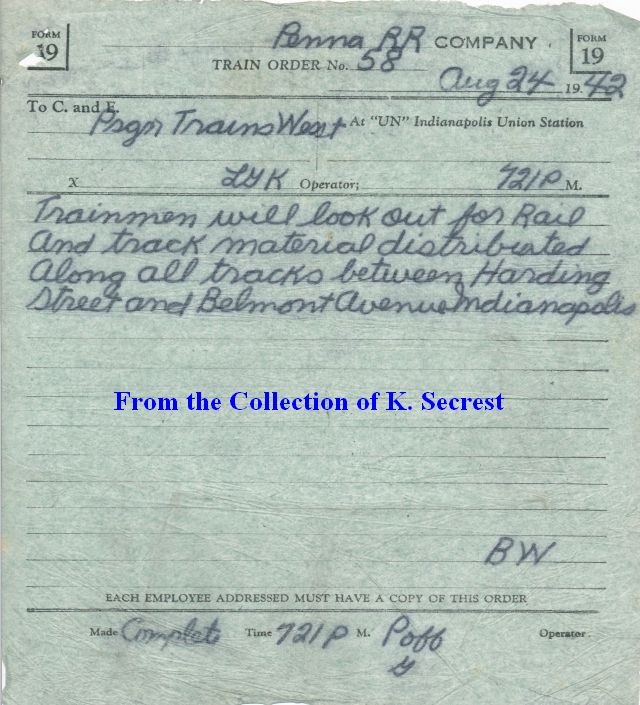 FORM 19 Penna RR COMPANY FORM 19
TRAIN ORDER No. 58
Aug 24 1942
To C. and E.
Psgr Trains West At "UN" Indianapolis Union Station
X LYK Operator; 721 P M.
Trainmen will look out for Rail
And track material distributed
Along all tracks between Harding
Street and Belmont Avenue Indianapolis
From the Collection of K. Secrest
BW
EACH EMPLOYEE ADDRESSED MUST HAVE A COPY OF THIS ORDER
Made Complete Time 721 P M. Poff Operator.